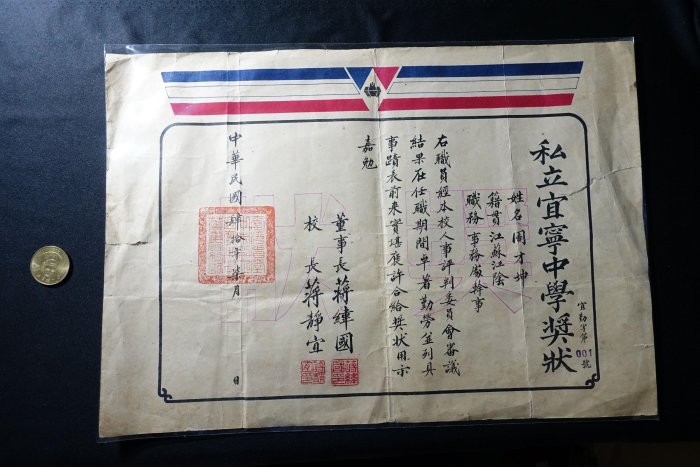 私立宜寧中學獎狀
宜勤字第001號
姓名 周才坤
籍貫 江蘇江陰
職務 事務處幹事
右職員經本校人事評判委員會審議
結果在任職期間卓著勤勞並列具
事蹟表前來實堪褒許合給獎狀用示
嘉勉
董事長 蔣緯國
校長 蔣靜宜
中華民國肆拾年柒月 日
獎狀